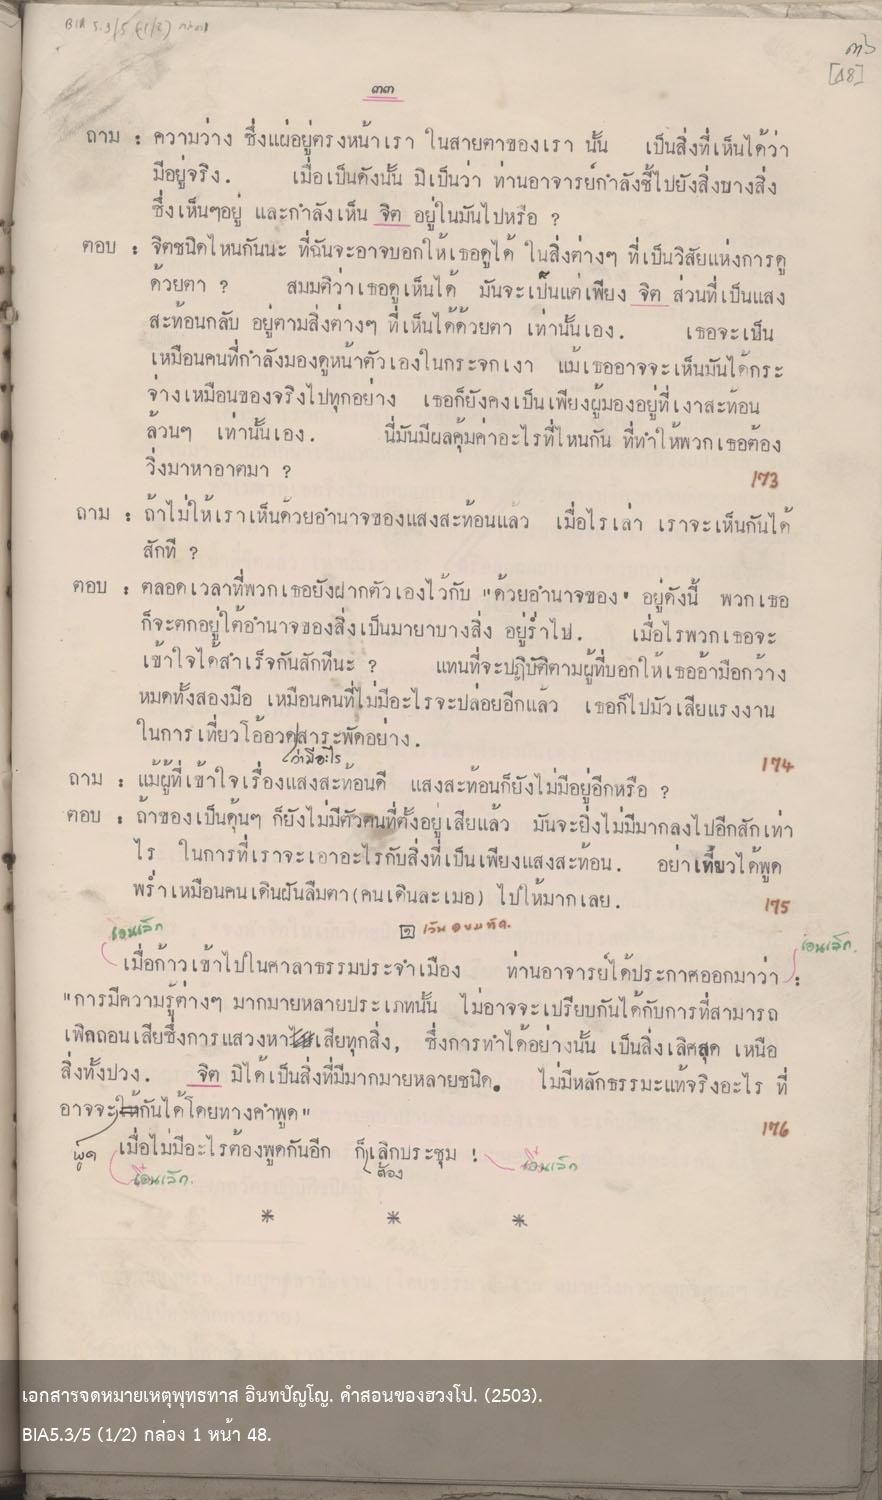 BIA 5.3/5 (1/2) กล่อง1
๓๖
[48]
๓๓
ถาม : ความว่าง ซึ่งแผ่อยู่ตรงหน้าเรา ในสายตาของเรา นั้น เป็นสิ่งที่เห็นได้ว่า
มีอยู่จริง. เมื่อเป็นดังนั้น มิเป็นว่า ท่านอาจารย์กำลังชี้ไปยังสิ่งบางสิ่ง
ซึ่งเห็นๆอยู่ และกำลังเห็น จิต อยู่ในมันไปหรือ ?
ตอบ : จิตชนิดไหนกันนะ ที่ฉันจะอาจบอกให้เธอดูได้ ในสิ่งต่างๆ ที่เป็นวิสัยแห่งการดู
ด้วยตา ? สมมติว่าเธอดูเห็นได้ มันจะเป็นแต่เพียง จิต ส่วนที่เป็นแสง
สะท้อนกลับ อยู่ตามสิ่งต่างๆ ที่เห็นได้ด้วยตา เท่านั้นเอง. เธอจะเป็น
เหมือนคนที่กำลังมองดูหน้าตัวเองในกระจกเงา แม้เธออาจจะเห็นมันได้กระ
จ่างเหมือนของจริงไปทุกอย่าง เธอก็ยังคงเป็นเพียงผู้มองอยู่ที่เงาสะท้อน
ล้วนๆ เท่านั้นเอง. นี่มันมีผลคุ้มค่าอะไรที่ไหนกัน ที่ทำให้พวกเธอต้อง
วิ่งมาหาอาตมา ?
173
ถาม : ถ้าไม่ให้เราเห็นด้วยอำนาจของแสงสะท้อนแล้ว เมื่อไรเล่า เราจะเห็นกันได้
สักที ?
ตอบ : ตลอดเวลาที่พวกเธอยังฝากตัวเองไว้กับ "ด้วยอำนาจของ" อยู่ดังนี้ พวกเธอ
ก็จะตกอยู่ใต้อำนาจของสิ่งเป็นมายาบางสิ่ง อยู่ร่ำไป. เมื่อไรพวกเธอจะ
เข้าใจได้สำเร็จกันสักทีนะ ? แทนที่จะปฏิบัติตามผู้ที่บอกให้เธออ้ามือกว้าง
หมดทั้งสองมือ เหมือนคนที่ไม่มีอะไรจะปล่อยอีกแล้ว เธอก็ไปมัวเสียแรงงาน
ในการเที่ยวโอ้อวดสาระพัดอย่าง.
ว่ามีอะไร
174
ถาม : แม้ผู้ที่เข้าใจเรื่องแสงสะท้อนดี แสงสะท้อนก็ยังไม่มีอยู่อีกหรือ ?
ตอบ : ถ้าของเป็นดุ้นๆ ก็ยังไม่มีตัวตนที่ตั้งอยู่เสียแล้ว มันจะยิ่งไม่มีมากลงไปอีกสักเท่า
ไร ในการที่เราจะเอาอะไรกับสิ่งที่เป็นเพียงแสงสะท้อน. อย่าเที่ยวได้พูด
พร่ำเหมือนคนเดินฝันลืมตา(คนเดินละเมอ) ไปให้มากเลย.
175
ย่อนเล็ก
เมื่อก้าวเข้าไปในศาลาธรรมประจำเมือง ท่านอาจารย์ได้ประกาศออกมาว่า :
ย่อนเล็ก.
"การมีความรู้ต่างๆ มากมายหลายประเภทนั้น ไม่อาจจะเปรียบกันได้กับการที่สามารถ
เพิกถอนเสียซึ่งการแสวงหาเสียทุกสิ่ง, ซึ่งการทำได้อย่างนั้น เป็นสิ่งเลิศสุด เหนือ
สิ่งทั้งปวง. จิต มิได้เป็นสิ่งที่มีมากมายหลายชนิด. ไม่มีหลักธรรมะแท้จริงอะไร ที่
อาจจะให้กันได้โดยทางคำพูด"
176
พูด เมื่อไม่มีอะไรต้องพูดกันอีก ก็เลิกประชุม !
ต้อง
ย่อนเล็ก.
ย่อนเล็ก
* * *
เอกสารจดหมายเหตุพุทธทาส อินทปัญโญ. คำสอนของฮวงโป. (2503).
BIA5.3/5 (1/2) กล่อง 1 หน้า 48.